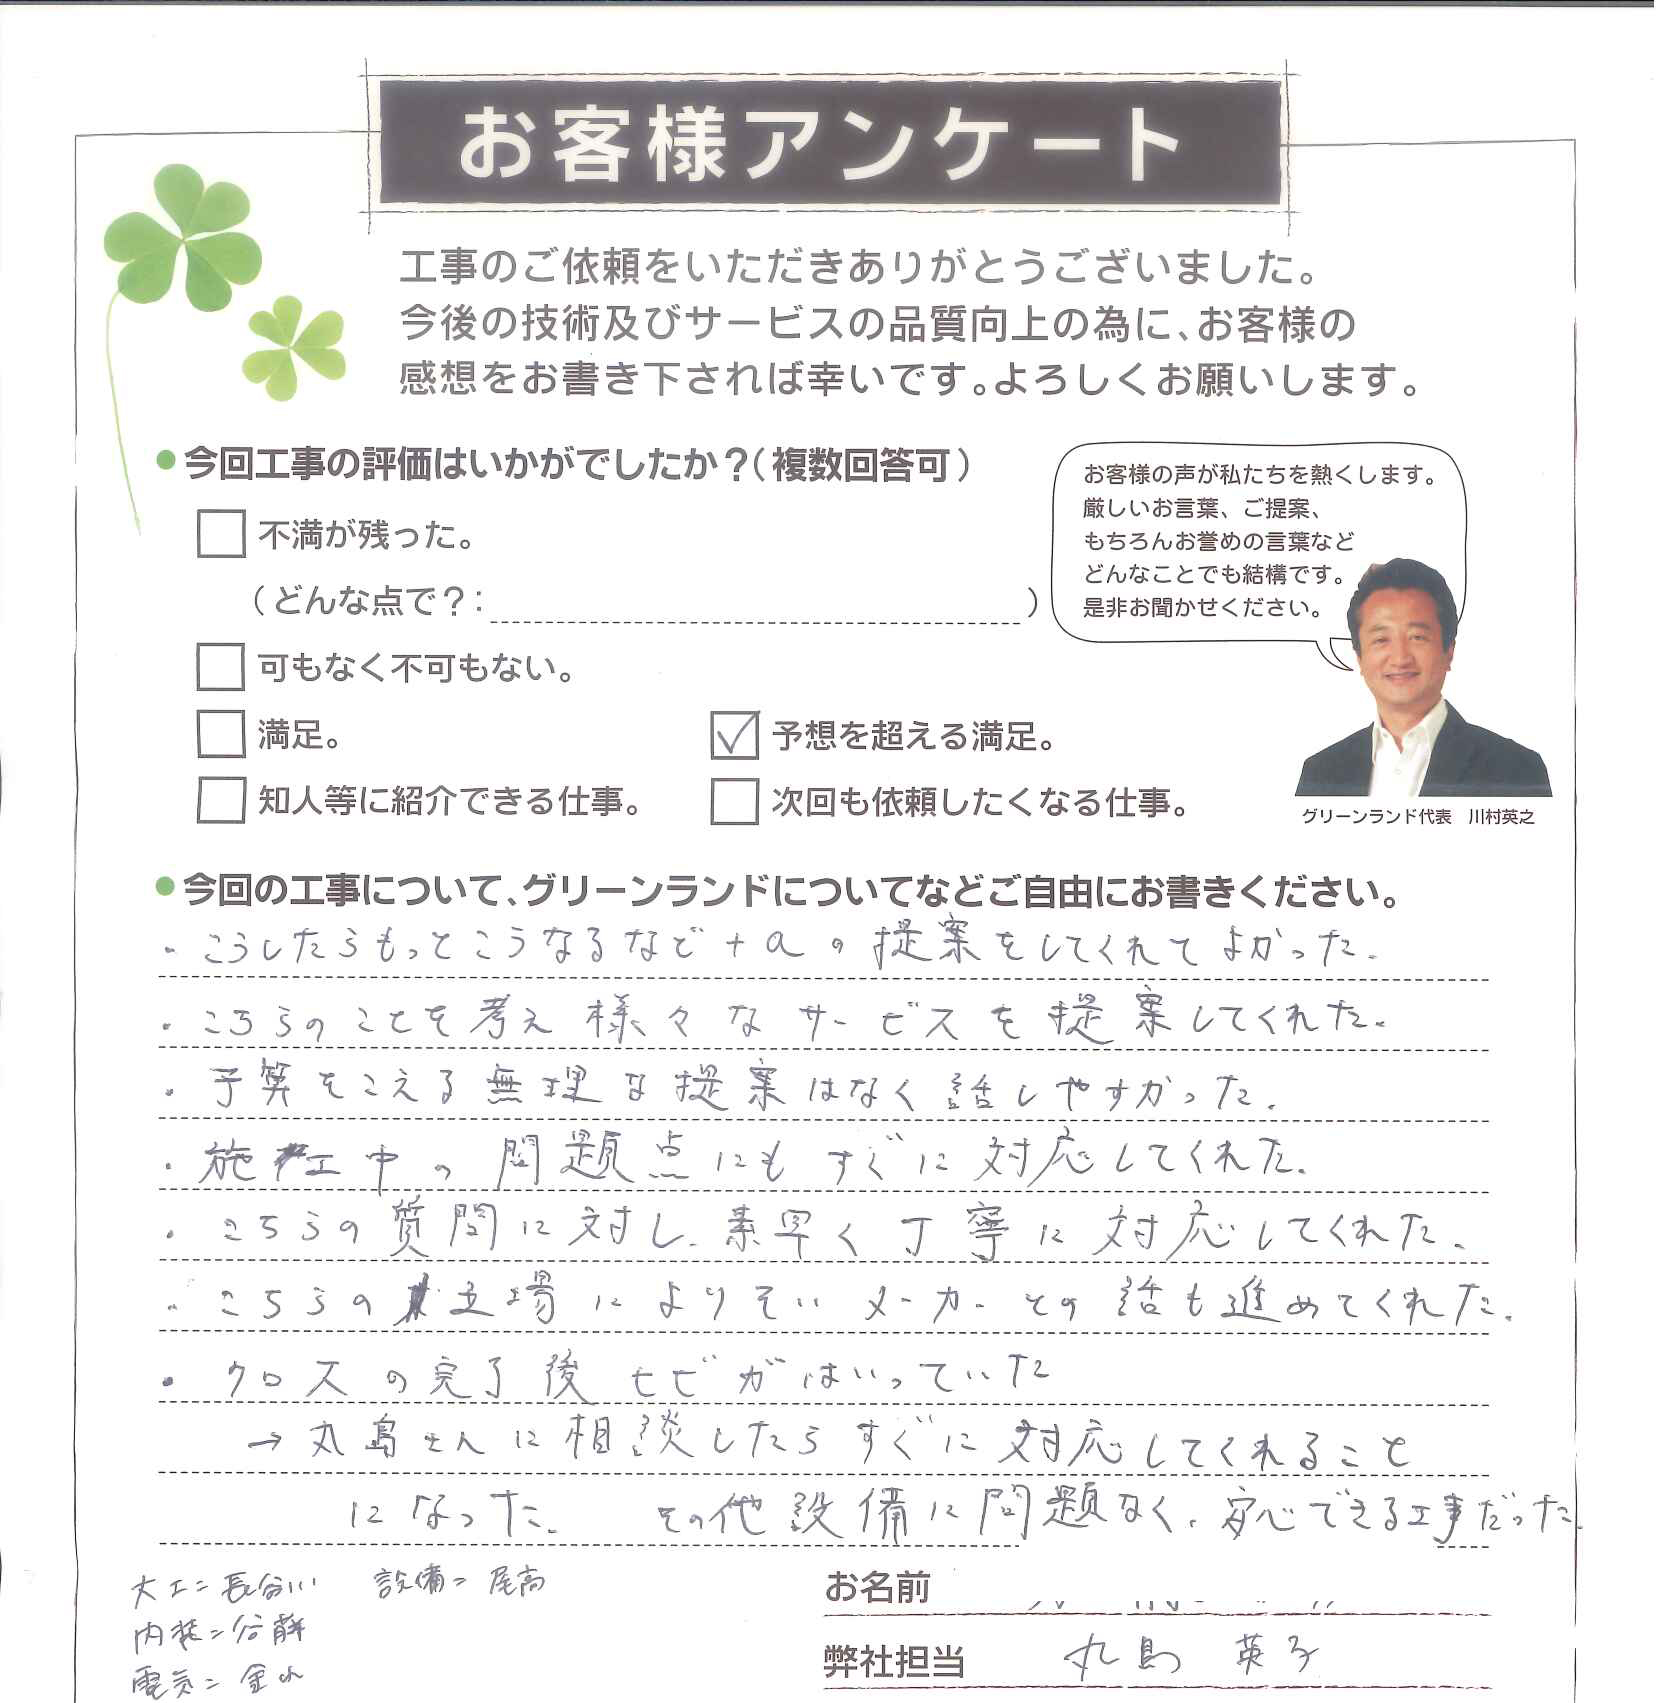 お客様アンケート
工事のご依頼をいただきありがとうございました。
今後の技術及びサービスの品質向上の為に、お客様の
感想をお書き下されば幸いです。よろしくお願いします。
●今回工事の評価はいかがでしたか？（複数回答可）
□ 不満が残った。
（どんな点で？： ）
□ 可もなく不可もない。
□ 満足。 ☑ 予想を超える満足。
□ 知人等に紹介できる仕事。 □ 次回も依頼したくなる仕事。
お客様の声が私たちを熱くします。
厳しいお言葉、ご提案、
もちろんお誉めの言葉など
どんなことでも結構です。
是非お聞かせください。
グリーンランド代表 川村英之
●今回の工事について、グリーンランドについてなどご自由にお書きください。
・こうしたらもっとこうなるなど＋αの提案をしてくれてよかった。
・こちらのことを考え様々なサービスを提案してくれた。
・予算をこえる無理な提案はなく話しやすかった。
・施工中の問題点にもすぐに対応してくれた。
・こちらの質問に対し、素早く丁寧に対応してくれた。
・こちらの立場によりそいメーカーとの話も進めてくれた。
・クロスの完了後ヒビがはいっていた
→丸島さんに相談したらすぐに対応してくれること
になった。 その他設備に問題なく、安心できる工事だった。
大工＝長谷川 設備＝尾高
内装＝
電気＝
お名前
弊社担当 丸島 英子